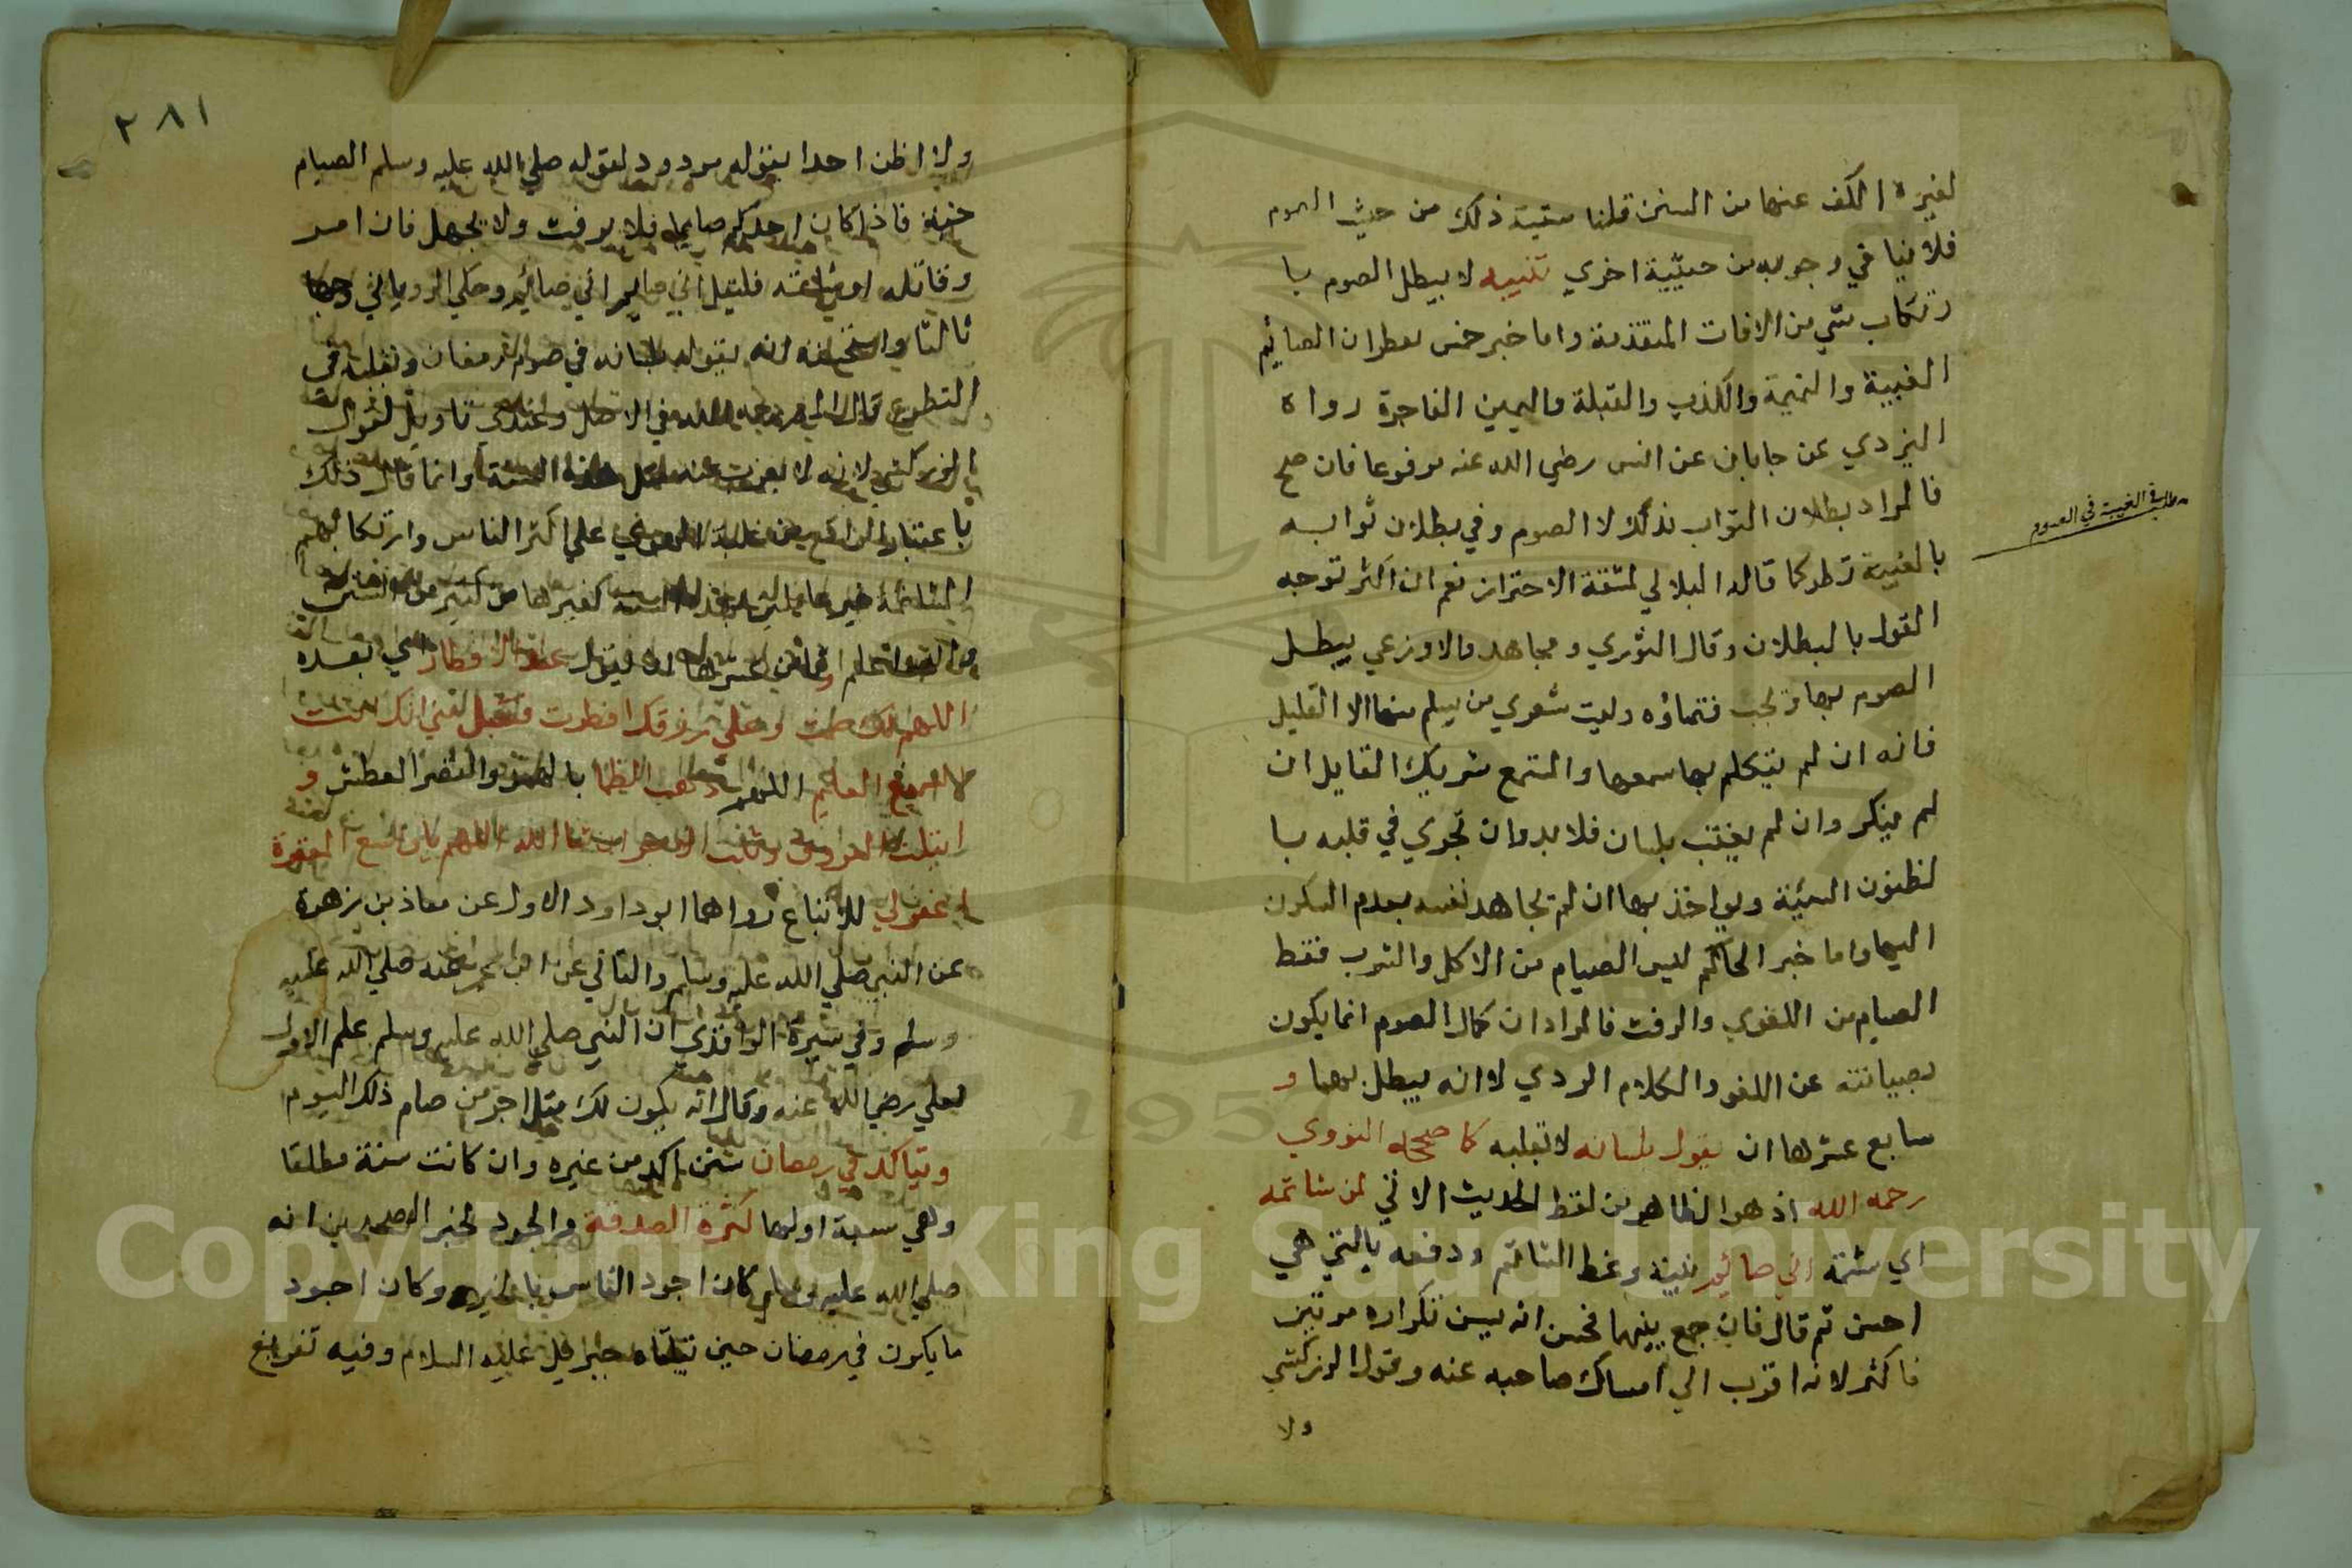 لغيره الكف عنها من السنن قلنا سنية ذلك من حيث الصوم
فلا ينافي وجوبه من حيثية اخري تنبيه لا يبطل الصوم با
رتكاب شي من الافات المتقدمة واما خبر خمس يفطرن الصائم
الغيبة والنميمة والكذب والقبلة واليمين الفاجرة رواه
اليزدي عن جابان عن انس رضي الله عنه مرفوعا فان صح
فالمراد بطلان الثواب بذلك لا الصوم وفي بطلان ثوابه
مطلب في الغيبة في الصوم
بالغيبة نظر كما قاله البلالي لمشقة الاحتراز نعم ان اكثر توجه
القول بالبطلان وقال الثوري ومجاهد والاوزعي يبطل
الصوم بها وتجب قضاؤه وليت شعري من يسلم منها الا القليل
فانه ان لم يتكلم بها سمعها والمستمع شريك القايل ان
لم ينكر وان لم يغتب بلسان فلا بد وان تجري في قلبه با
لظنون السيئة ويواخذ بها ان لم يجاهد نفسه بعدم السكون
اليها واما خبر الحاكم ليس الصيام من الاكل والشرب فقط
الصيام من اللغوي والرفث فالمراد ان كمال الصوم انما يكون
بصيانته عن اللغو والكلام الردي لا انه يبطل بهما و
سابع عشرها ان يقول بلسانه لا بقلبه كما صححه النووي
رحمه الله اذ هو الظاهر من لفظ الحديث الاتي لمن شاتمه
اي شتمه اني صائم بنية وعظ الشاتم ودفعه بالتي هي
احسن ثم قال فان جمع بينهما فحسن انه يسن تكراره مرتين
فاكثر لانه اقرب الي امساك صاحبه عنه وقول الزركشي
ولا
٢٨١
ولا اظن احدا يقوله مردود لقوله صلي الله عليه وسلم الصيام
جنة فاذا كان احدكم صايما فلا يرفث ولا يجهل فان امر
وقاتله او شاتمه فليقل اني صايم اني صائم وحكي الروياني وجها
ثالثا واستحسنه انه يقوله بلسانه في صوم رمضان وبقلبه في
التطوع قال في الاصل وعندي تاويل لقول
الزركشي لانه لا يعزب عنه مثل هذه السنة وانما قال ذلك
باعتبار علي اكثر الناس وارتكابهم
كغيرها من كثير من السنن
عشرها ان يقول عند الافطار اي بعده
اللهم لك صمت وعلي رزقك افطرت فتقبل مني انك انت
السميع العليم اللهم ذهب الظما العطش و
ابتلت العروق وثبت الاجر ان شا الله اللهم يا واسع المغفرة
اغفرلي للاتباع رواهما ابو داود الاول عن معاذ بن زهرة
عن النبي صلي الله عليه وسلم والثاني عن ابن عمر عنه صلي الله عليه
وسلم وفي سيرة الواقدي ان النبي صلي الله عليه وسلم علم الاول
لعلي رضي الله عنه وقال انه يكون لك مثل اجر من صام ذلك اليوم
ويتاكد في رمضان سنن اكد من غيره وان كانت سنة مطلقا
وهي سبعة اولها كثرة الصدقة والجود لخبر الصحيحين انه
صلي الله عليه وسلم كان اجود الناس بالخير وكان اجود
ما يكون في رمضان حين يلقاه جبرائيل عليه السلام وفيه تفريغ
Copyright © King Saud University
1957